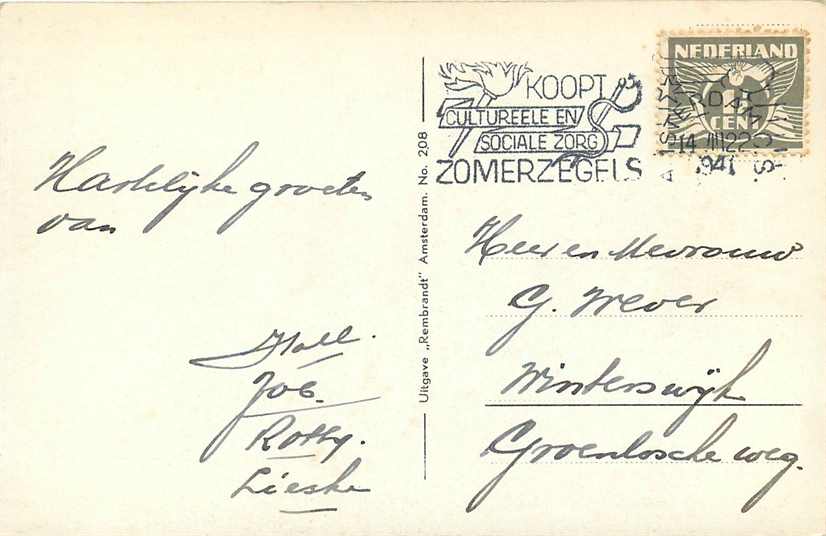 Hartelijke groeten
van
Joб.
Rotty.
Lieske
Uitgave „Rembrandt" Amsterdam. No. 208
KOOPT
CULTUREELE EN
SOCIALE ZORG
ZOMERZEGELS
NEDERLAND
CENT
1941
Heer en Mevrouw
G. Wever
Winterswijk
Groenlosche weg.